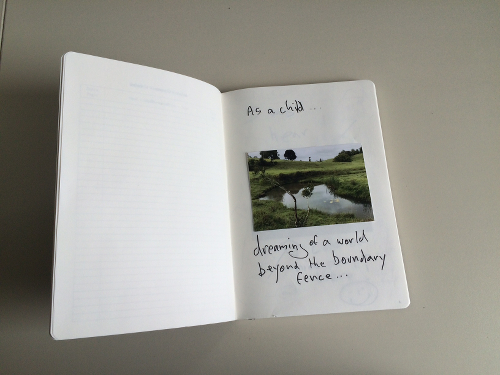 As a child...
dreaming of a world
beyond the boundary
fence...